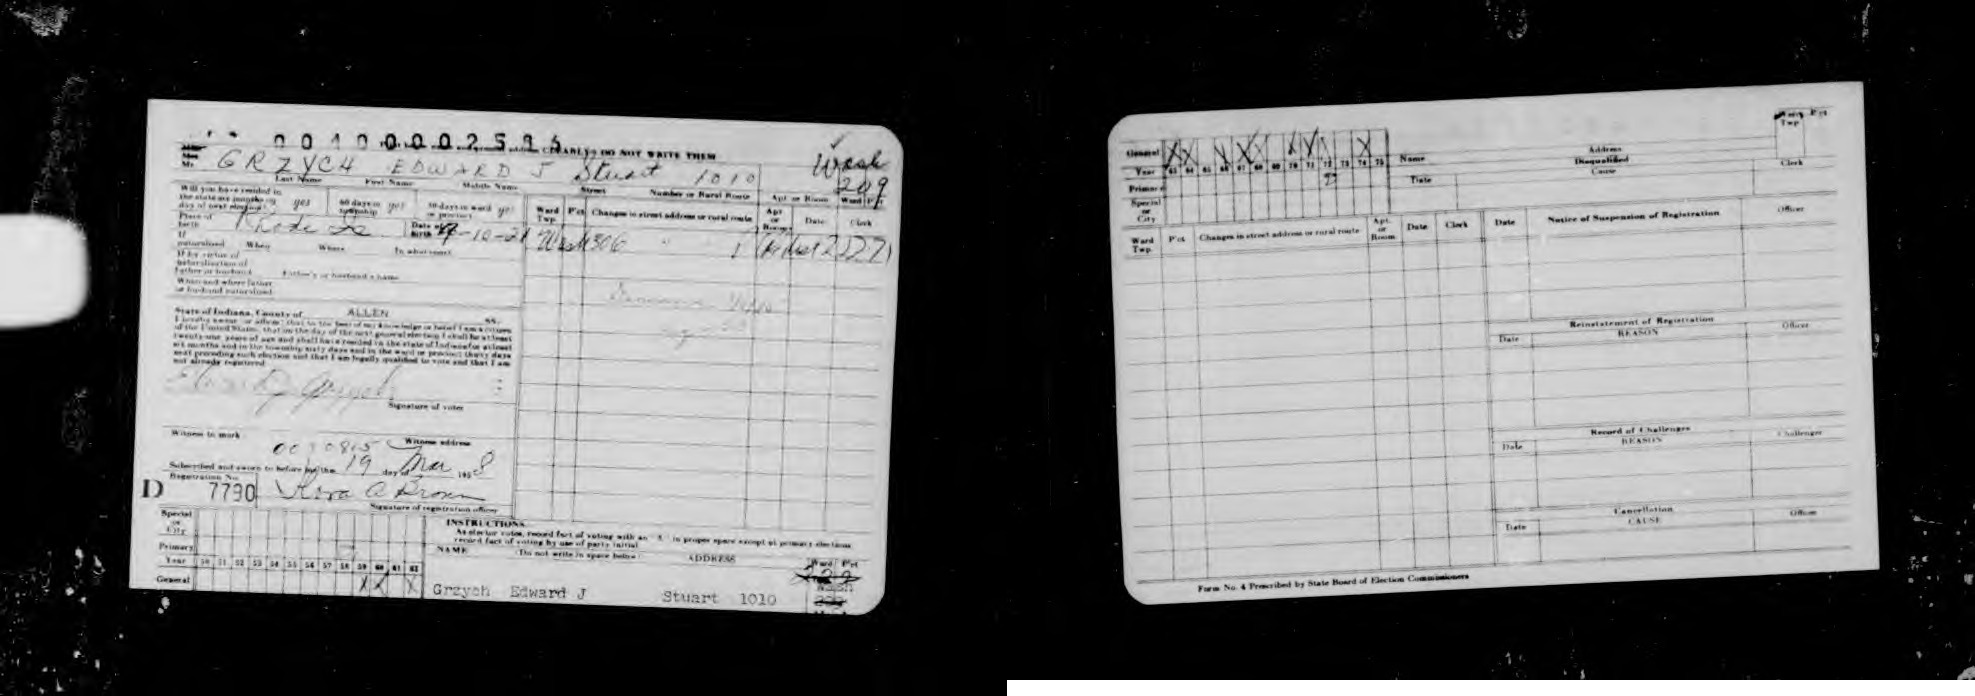 001000002596
CLEARLY DO NOT WRITE THEM
Mr. GRZYCH EDWARD J Stuart 1010 Wash
209
Last Name First Name Middle Name Street Number or Rural Route Apt or Room Ward P'ct
Will you have resided in
the state six months yes 60 days in township yes 30 days in ward or precinct yes
day of next election
Ward Twp. P'ct Changes in street address or rural route Apt. or Room Date Clerk
Place of birth Rhode Is. Date of birth
306
If naturalized When Where In what court
If by virtue of
naturalization of
father or husband Father's or husband's name
When and where father
or husband naturalized
State of Indiana, County of ALLEN ss.
I hereby swear or affirm that to the best of my knowledge or belief I am a citizen
of the United States, that on the day of the next general election I shall be at least
twenty-one years of age and shall have resided in the state of Indiana for at least
six months and in the township sixty days and in the ward or precinct thirty days
next preceding such election and that I am legally qualified to vote and that I am
not already registered.
Signature of voter
Witness to mark Witness address
Subscribed and sworn to before me this 19 day of Mar 1958
Registration No.
D 7790
Signature of registration officer
Special or City
Primary
Year 50 51 52 53 54 55 56 57 58 59 60 61 62
General X X X
INSTRUCTIONS
As elector votes, record fact of voting with an X in proper space except at primary elections
record fact of voting by use of party initial.
NAME (Do not write in space below) ADDRESS Ward P'ct
Grzych Edward J Stuart 1010
General
Year 63 64 65 66 67 68 69 70 71 72 73 74 75
Primary
Special or City
Name Address
Date Disqualified Cause Clerk
Ward Twp. P'ct
Ward Twp. P'ct Changes in street address or rural route Apt. or Room Date Clerk
Date Notice of Suspension of Registration Officer
Reinstatement of Registration
Date REASON Officer
Record of Challenges
Date REASON Challenger
Cancellation
Date CAUSE Officer
Form No. 4 Prescribed by State Board of Election Commissioners